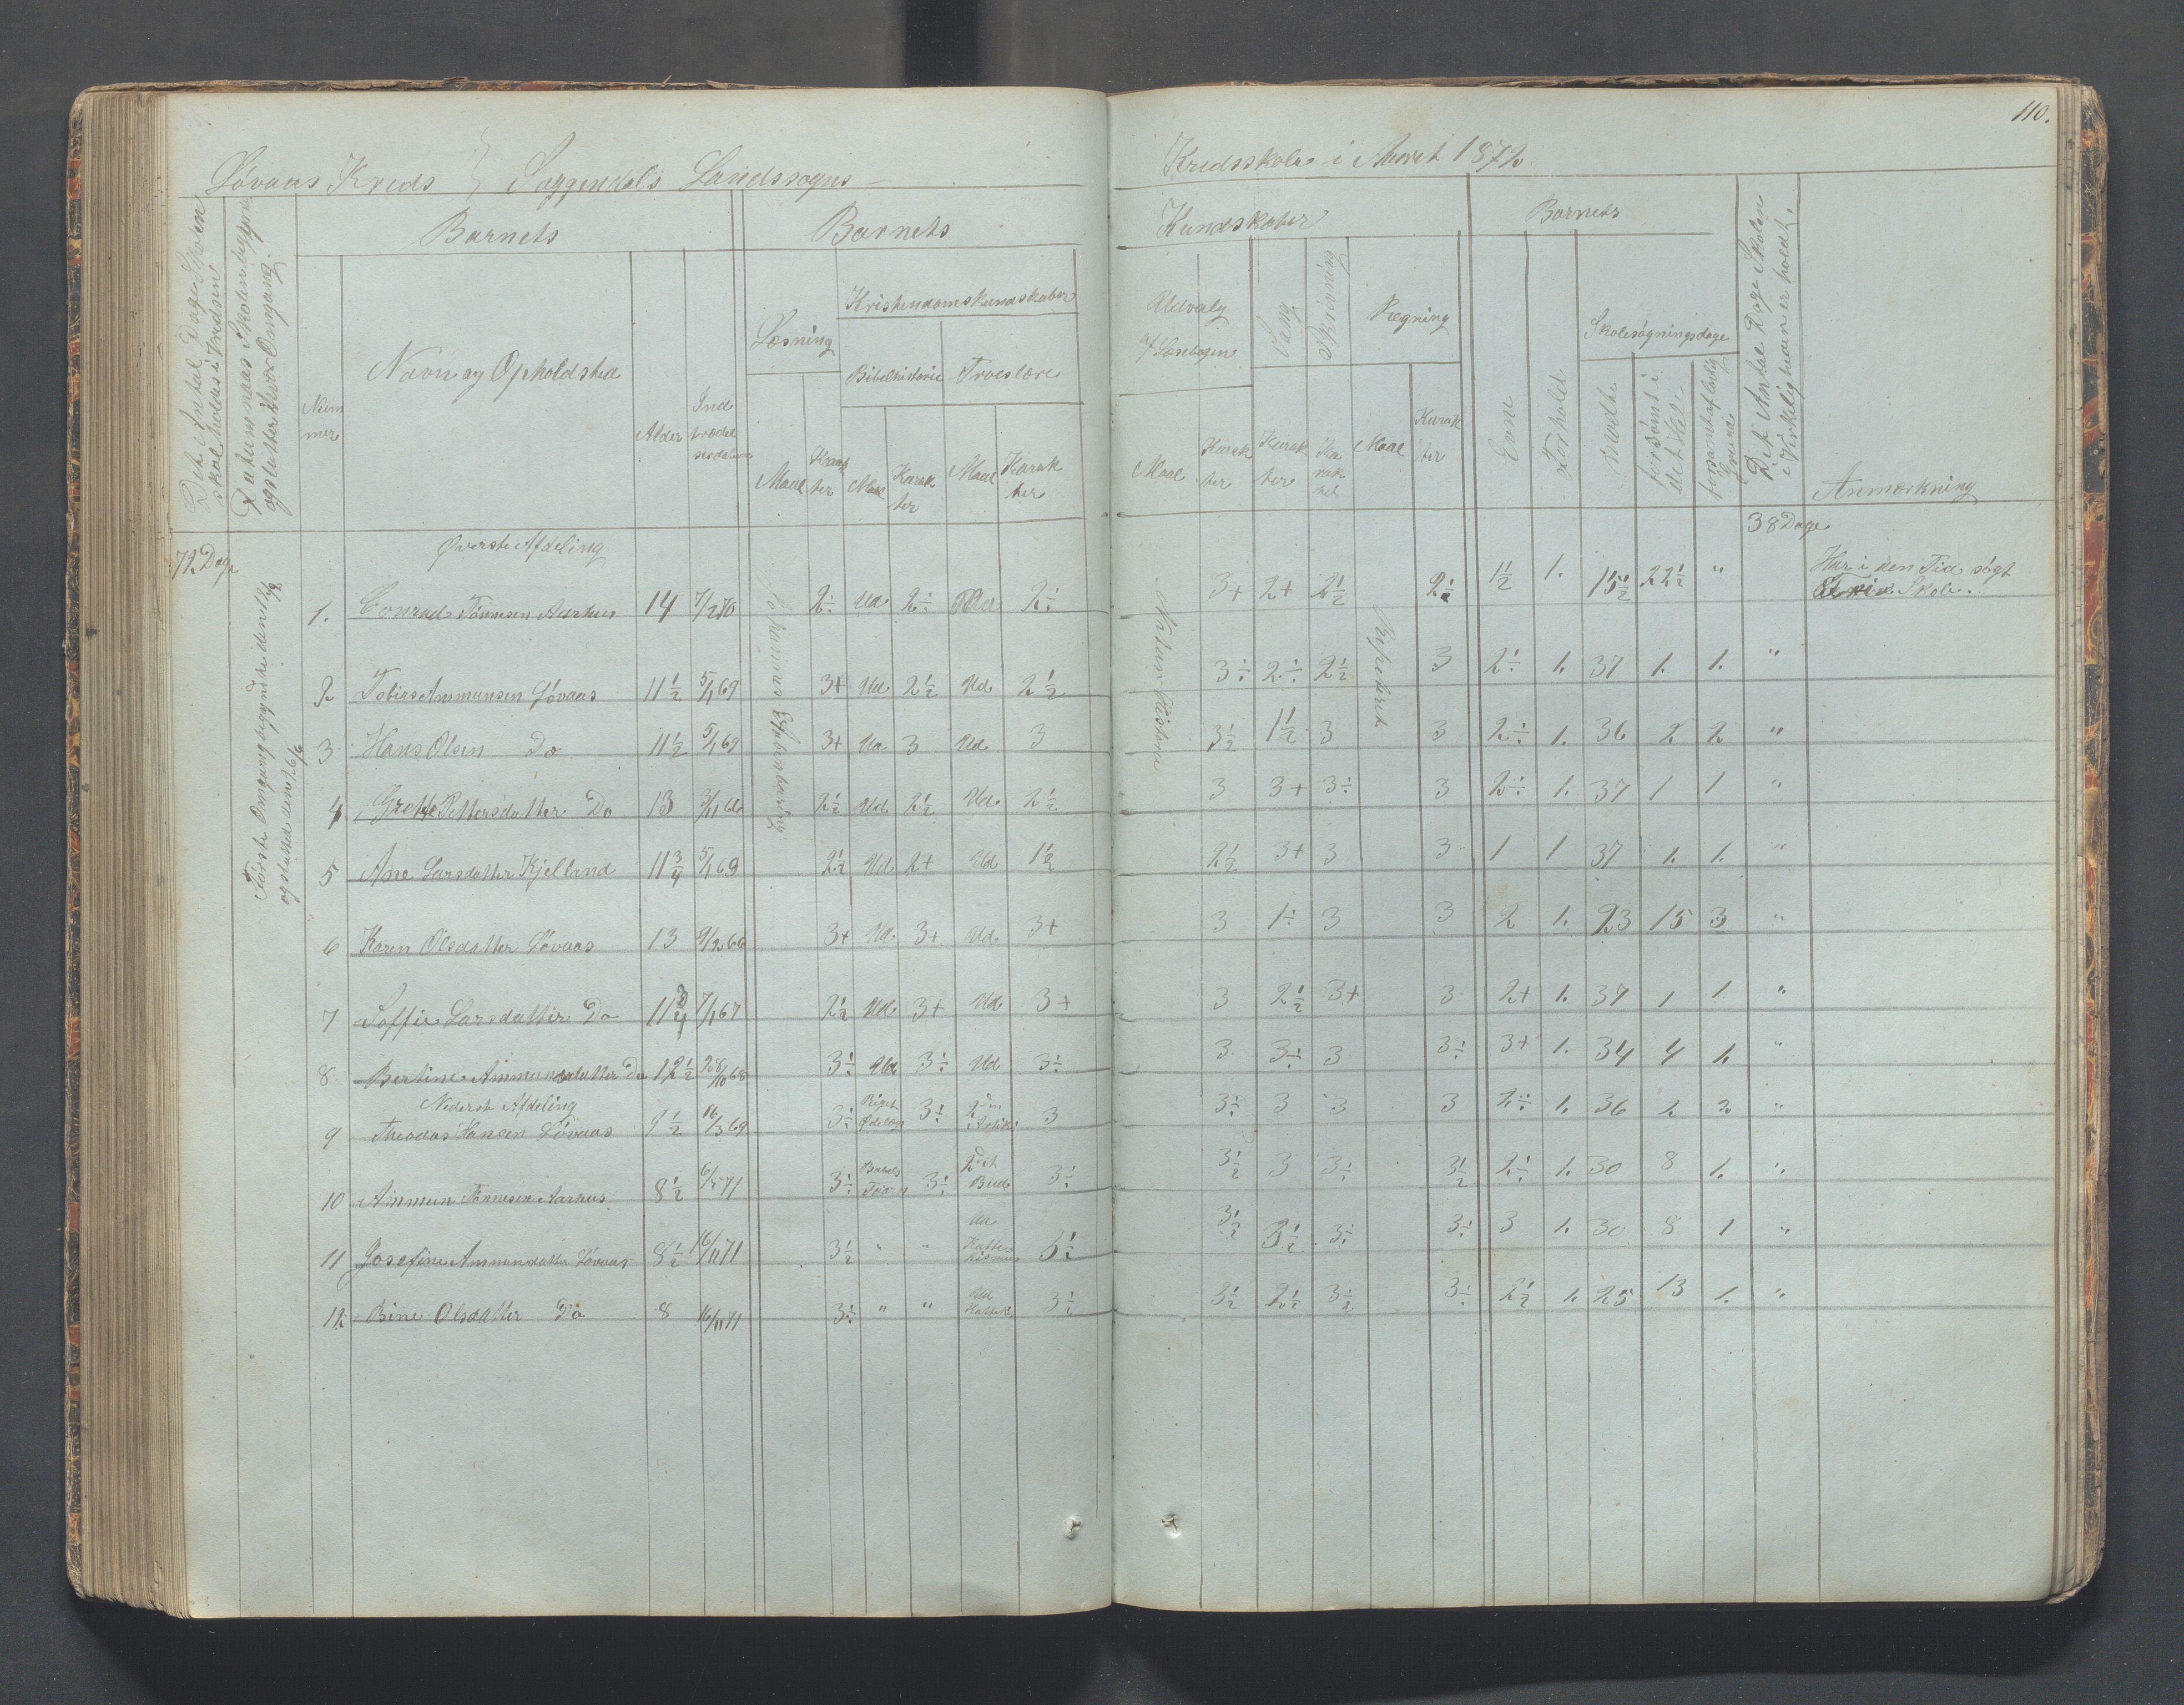 110.
Løvaas Kreds } Soggendals Landssogns
Kredsskole i Aaret 1872
Det Antal Dage Skolen skal holdes i Kredsen
Datum naar Skolen begyndte og slutter hver Omgang.
Barnets
Barnets
Kundskaber
Barnets
Det Antal Dage Skolen i Virkeligheden er holdt.
Nummer
Navn og Opholdsted
Alder
Indtrædelsesdatum
Læsning
Kristendomskundskaber
Bibelhistorie
Troeslære
Maal
Karakter
Maal
Karakter
Maal
Karakter
Udvalg af Læsebogen
Sang
Skrivning
Regning
Maal
Karakter
Karakter
Karakter
Maal
Karakter
Evne
Forhold
Skolesøgningsdage
mødte
forsømt i det Hele
forsømt af lovlig Grund
Anmærkning
72 Dage
Øverste Afdeling
38 Dage
Første Omgang begyndte den
og slutted den 26/6
Johannes Aabenbaring
Naturhistorie
1. Conrad Tønnesen Aarhus 14 7/2 70 2÷ Ud 2÷ Ud 2÷ 3+ 2+ 2½ 2÷ 1½ 1. 15½ 22½ "
Har i den Tid søgt
Skole.
2 Tobias Ammunsen Løvaas 11½ 5/1 69 3+ Ud 2½ Ud 2½ 3÷ 2÷ 2½ 3 2÷ 1. 37 1. 1. "
3 Hans Olsen Do 11½ 5/1 69 3+ Ud 3 Ud 3 3½ 1½ 3 3 2÷ 1. 36 2 2 "
4 Grethe Pettersdatter Do 13 2½ Ud 2½ Ud. 2½ 3 3+ 3÷ 3 2÷ 1. 37 1 1 "
5 Ane Larsdatter Kjelland 11¾ 5/1 69 2½ Ud 2+ Ud 1½ 2½ 3+ 3 3 1 1 37 1. 1. "
6 Karen Olsdatter Løvaas 13 9/2 66 3+ Ud. 3+ Ud. 3+ 3 1÷ 3 3 2 1. 23 15 3 "
7 Soffie Larsdatter Do 11¾ 7/1 67 2½ Ud 3+ Ud 3+ 3 2½ 3+ 3 2+ 1. 37 1 1. "
8 Bertine Ammundsdatter Do 12½ 28/10 68 3÷ Ud 3÷ Ud 3÷ 3 3÷ 3 3÷ 3+ 1. 34 4 1. "
Nederste Afdeling
9 Theodor Hansen Løvaas 9½ 16/3 69 3÷ Riget Ødelagt 3÷ 2den Artik: 3 3÷ 3 3 3 2÷ 1. 36 2 2 "
10 Ammun Tønnesen Aarhus 8½ 6/5 71 3÷ Babels Taarn 3÷ 2det Bud 3÷ 3½ 3 3÷ 3½ 2÷ 1. 30 8 1. "
11 Josefine Ammundatter Løvaas 8½ 16/11 71 3½ " " Ud Katekismus 3½ 3½ 3½ 3÷ 3÷ 3 1. 30 8 1 "
12 Bine Olsdatter Do 8 16/11 71 3÷ " " Ud Kateki. 3½ 3½ 2½ 3½ 3÷ 2½ 1. 25 13 1. "